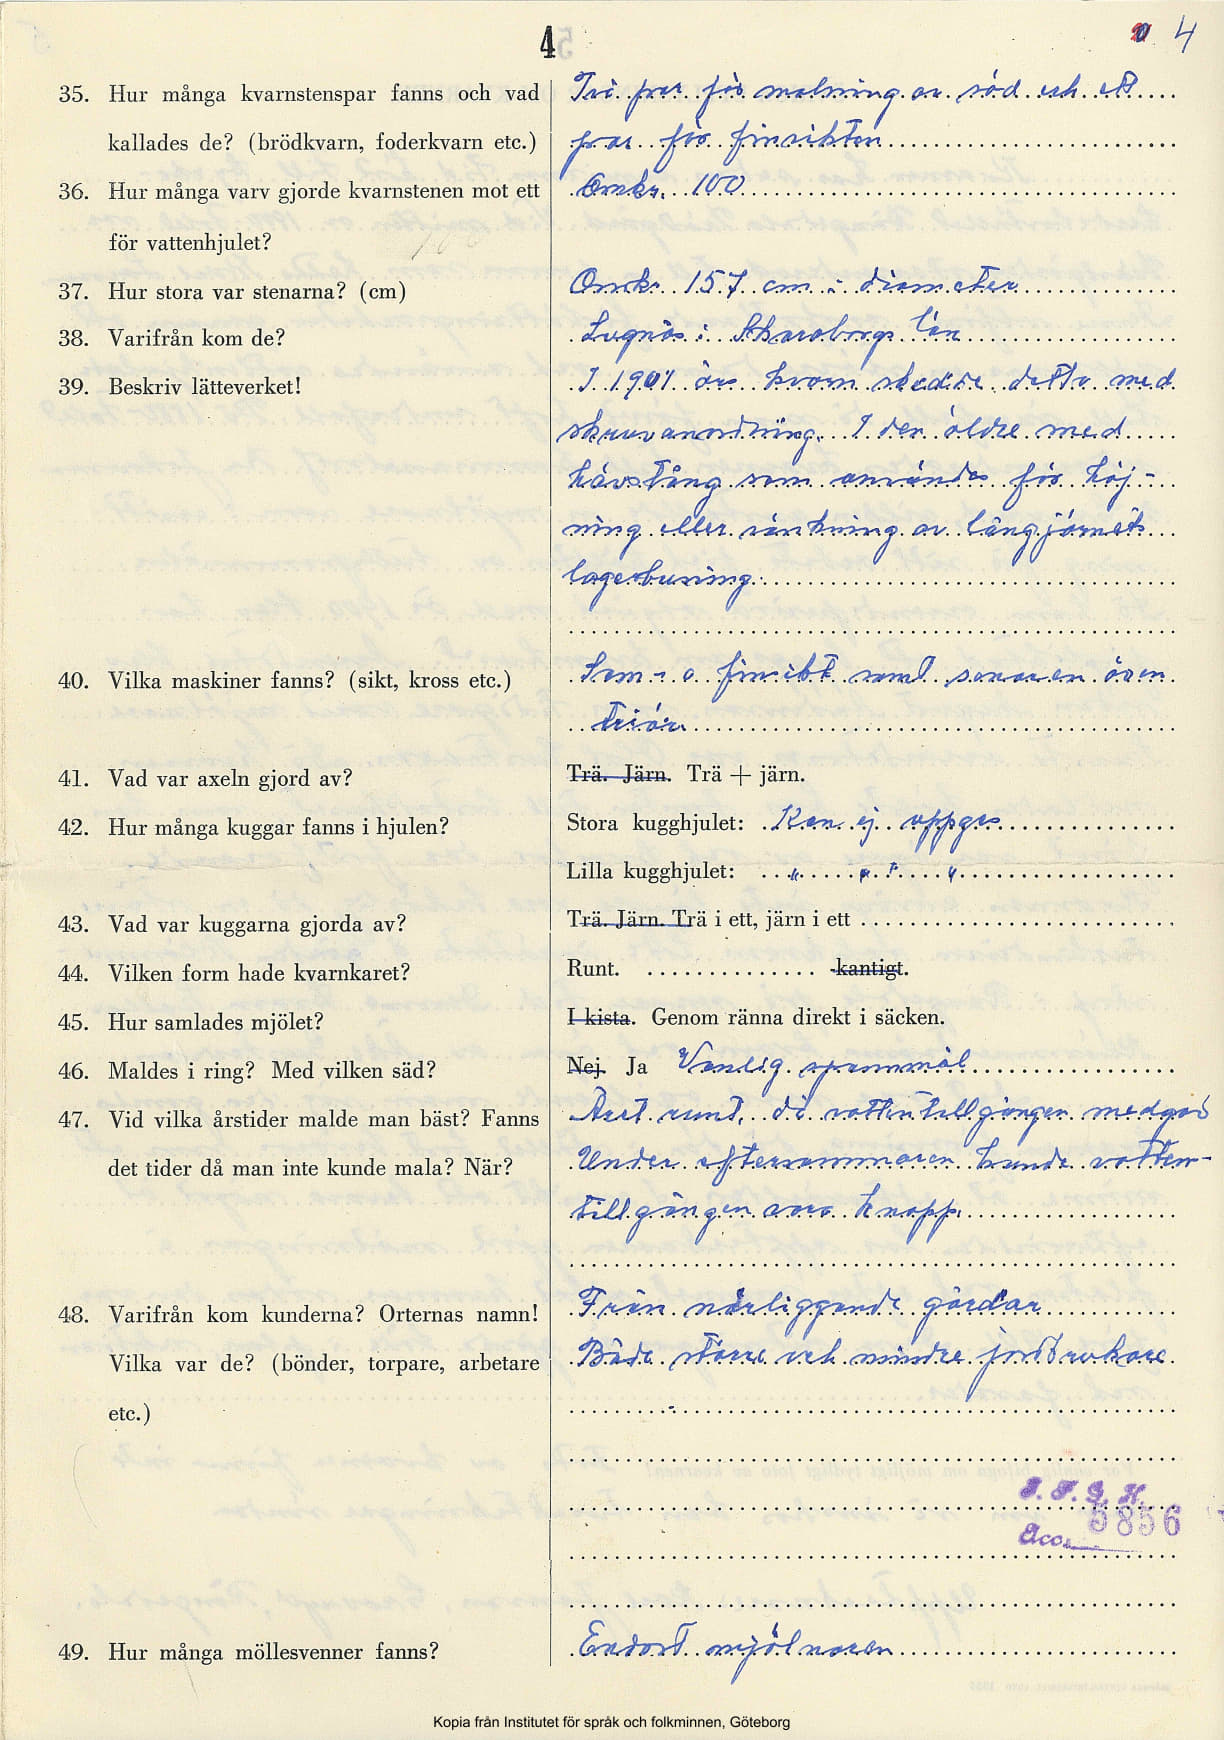 4
4
35. Hur många kvarnstenspar fanns och vad Två par för malning av säd och ett
kallades de? (brödkvarn, foderkvarn etc.) par för finsikten
36. Hur många varv gjorde kvarnstenen mot ett Omkr. 100
för vattenhjulet?
37. Hur stora var stenarna? (cm) Omkr 157 cm i diameter
38. Varifrån kom de? Lugnås i Skaraborgs län
39. Beskriv lätteverket! I 1901 års kvarn skedde detta med
skruvanordning. I den äldre med
hävstång som användes för höj-
ning eller sänkning av långjärnets
lagerbussning.
40. Vilka maskiner fanns? (sikt, kross etc.) Sam- o finsikt samt senare en även
triör
41. Vad var axeln gjord av? Trä. Järn. Trä + järn.
42. Hur många kuggar fanns i hjulen? Stora kugghjulet: Kan ej uppges
Lilla kugghjulet: " " " "
43. Vad var kuggarna gjorda av? Trä. Järn. Trä i ett, järn i ett
44. Vilken form hade kvarnkaret? Runt. kantigt.
45. Hur samlades mjölet? I kista. Genom ränna direkt i säcken.
46. Maldes i ring? Med vilken säd? Nej. Ja Vanlig spannmål
47. Vid vilka årstider malde man bäst? Fanns Året runt, då vattentillgången medgav
det tider då man inte kunde mala? När? Under eftersommaren kunde vatten-
tillgången vara knapp.
48. Varifrån kom kunderna? Orternas namn! Från närliggande gårdar
Vilka var de? (bönder, torpare, arbetare Både större och mindre jordbrukare
etc.)
I. F. G. H.
Acc. 5856
49. Hur många möllesvenner fanns? Endast mjölnaren
Kopia från Institutet för språk och folkminnen, Göteborg